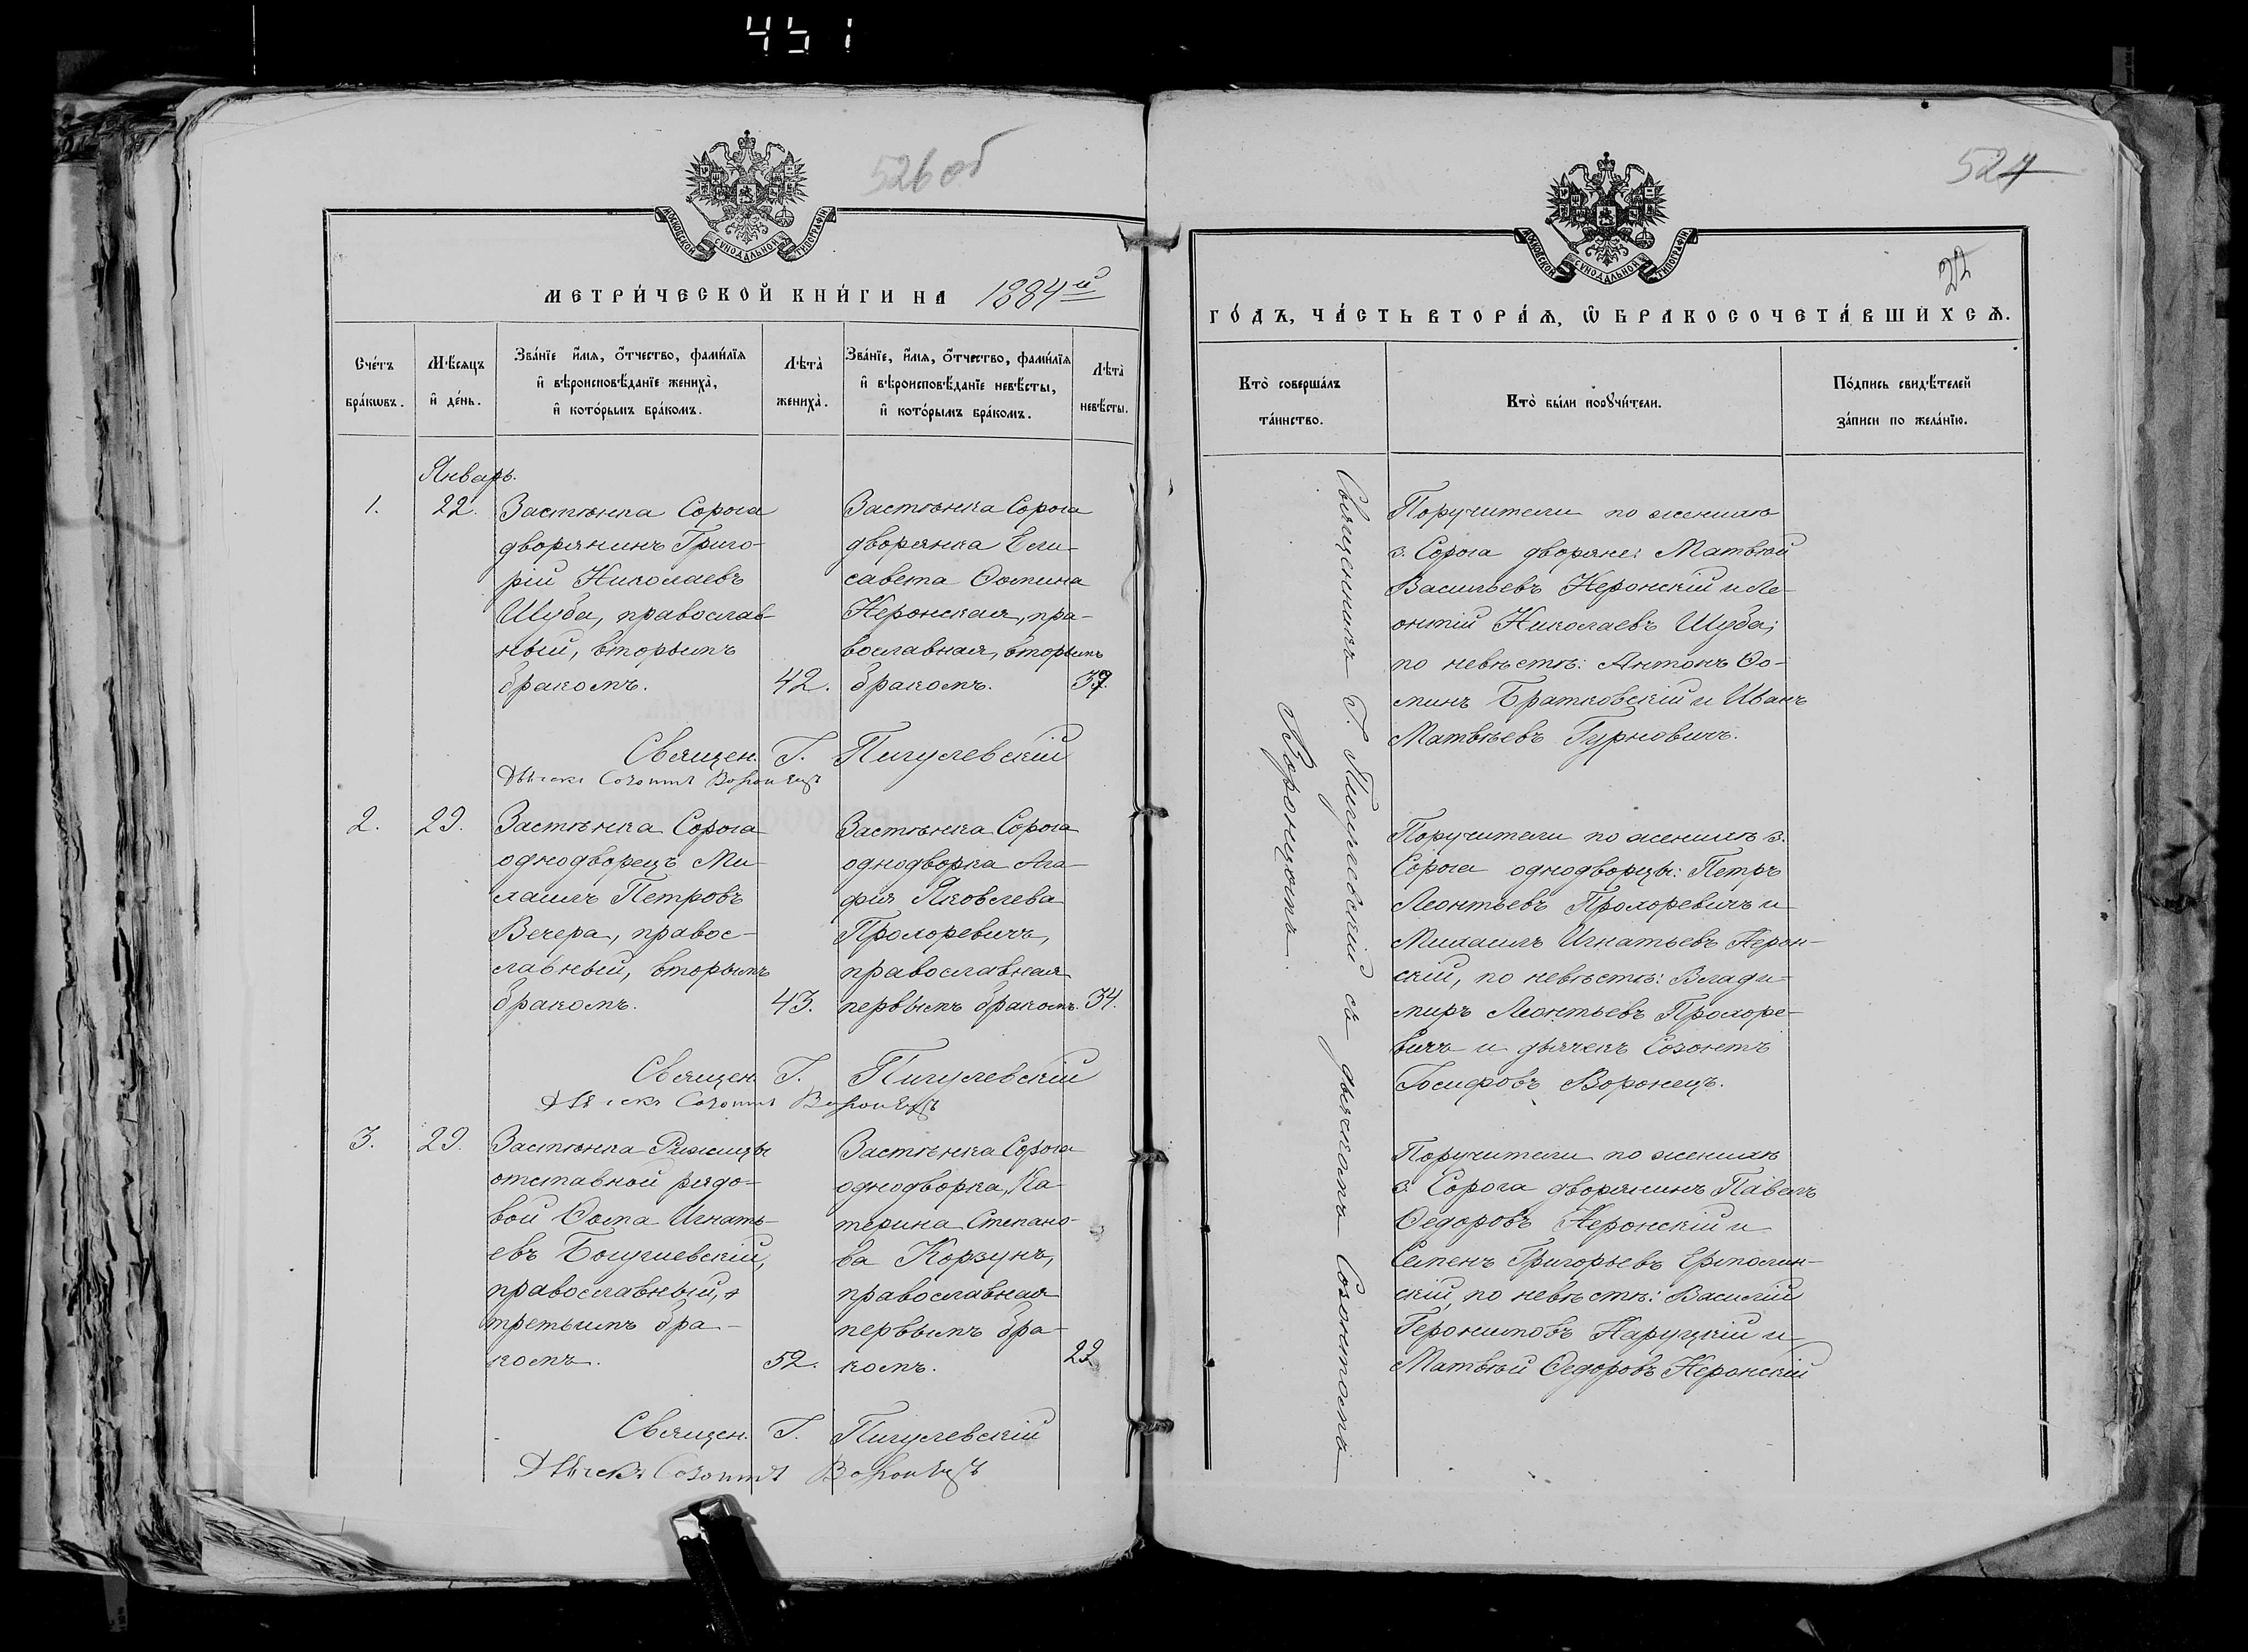 451
526 об
МОСКОВСКОЙ СУНОДАЛЬНОЙ ТИПОГРАФІИ
МЕТРИ́ЧЕСКОЙ КНИ́ГИ НА 1884й
Сче́тъ бра́кωвъ.
Мѣ́сяцъ и҆ де́нь.
Зва́нїе и҆́мя, ѻ҆́тчество, фами́лїя и҆ вѣроисповѣ́данїе жениха̀, и҆ кото́рымъ бра́комъ.
Лѣта̀ жениха̀.
Зва́нїе, и҆́мя, ѻ҆́тчество, фами́лїя и҆ вѣроисповѣ́данїе невѣ́сты, и҆ кото́рымъ бра́комъ.
Лѣта̀ невѣ́сты.
Январь.
1.
22.
Застѣнка Сорога
дворянинъ Григо-
рій Николаевъ
Шуба, православ-
ный, вторымъ
бракомъ.
42.
Застѣнка Сорога
дворянка Ели-
савета Ѳомина
Неронская, пра-
вославная, вторымъ
бракомъ.
Священ. Г. Пигулевскій
Дьячекъ Созонтъ Воронецъ
2.
29.
Застѣнка Сорога
однодворецъ Ми-
хаилъ Петровъ
Вечера, правос-
лавный, вторымъ
бракомъ.
43.
Застѣнка Сорога
однодворка Ага-
фія Яковлева
Прохоревичъ,
православная
первымъ бракомъ.
34.
Священ. Г. Пигулевскій
Дьячекъ Созонтъ Воронецъ
3.
29.
Застѣнка
отставной рядо-
вой Ѳома Игнать-
евъ Богушевскій,
православный,
третьимъ бра-
комъ.
52.
Застѣнка Сорога
однодворка, Ка-
терина Степано-
ва Корзунъ,
православная
первымъ бра-
комъ.
29
Священ. Г. Пигулевскій
Дьячекъ Созонтъ Воронецъ
527
МОСКОВСКОЙ СУНОДАЛЬНОЙ ТИПОГРАФІИ
ГО́ДЪ, ЧА́СТЬ ВТОРА́Я, Ѡ БРАКОСОЧЕТА́ВШИХСЯ.
Кто̀ соверша́лъ та́инство.
Кто̀ бы́ли поручи́тели.
По́дпись свидѣ́телей за́писи по жела́нїю.
Священникъ Г. Пигулевскій съ дьячкомъ Созонтомъ
Воронцомъ.
Поручители по женихѣ
з. Сорога дворяне: Матвѣй
Васильевъ Неронскій и Ле-
онтій Николаевъ Шуба;
по невѣстѣ: Антонъ Ѳо-
минъ Братковскій и Иванъ
Матвѣевъ Гурновичъ.
Поручители по женихѣ з.
Сорога однодворцы: Петръ
Леонтьевъ Прохоревичъ и
Михаилъ Игнатьевъ Нерон-
скій, по невѣстѣ: Влади-
миръ Леонтьевъ Прохоре-
вичъ и дьячекъ Созонтъ
Іосифовъ Воронецъ.
Поручители по женихѣ
з. Сорога дворянинъ Павелъ
Ѳедоровъ Неронскій и
Семенъ Григорьевъ Ермолин-
скій, по невѣстѣ: Василій
Іеронимовъ Наруцкій и
Матвѣй Ѳедоровъ Неронскій